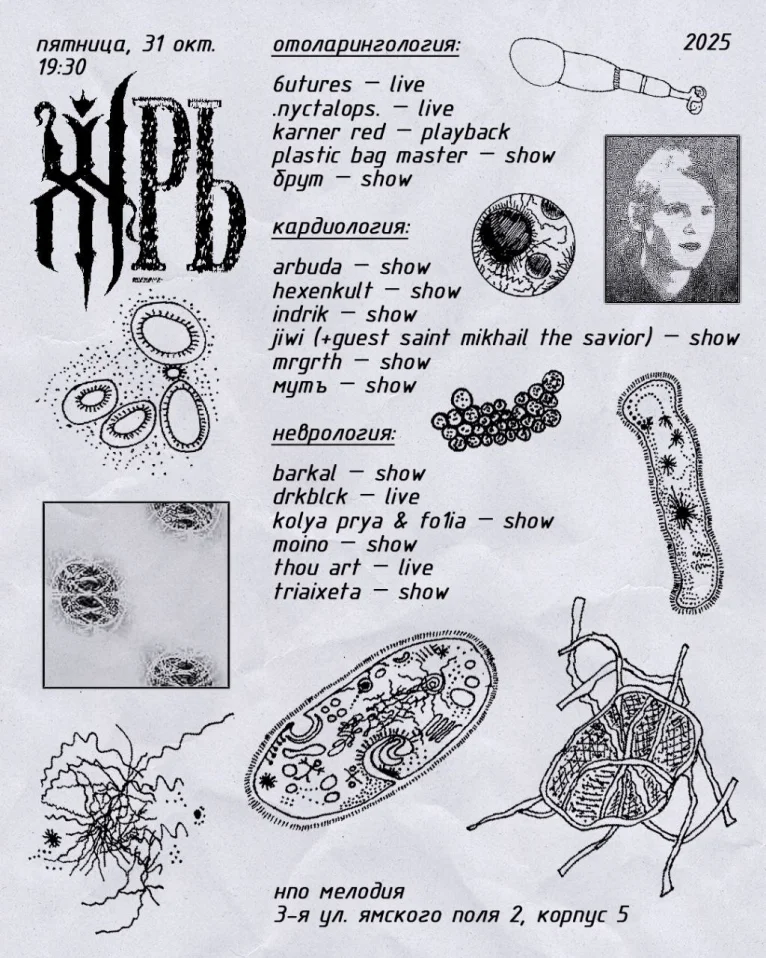 пятница, 31 окт.
19:30
2025
ХРЬ
отоларингология:
6utures — live
.nyctalops. — live
karner red — playback
plastic bag master — show
брут — show
кардиология:
arbuda — show
hexenkult — show
indrik — show
jiwi (+guest saint mikhail the savior) — show
mrgrth — show
муть — show
неврология:
barkal — show
drkblck — live
kolya prya & fo1ia — show
moino — show
thou art — live
triaixeta — show
нпо мелодия
3-я ул. ямского поля 2, корпус 5